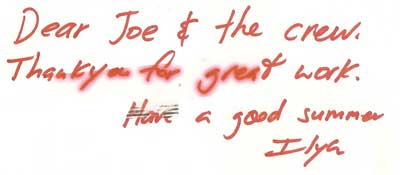 Dear Joe & the crew.
Thankyou for great work.
Have a good summer
Ilya